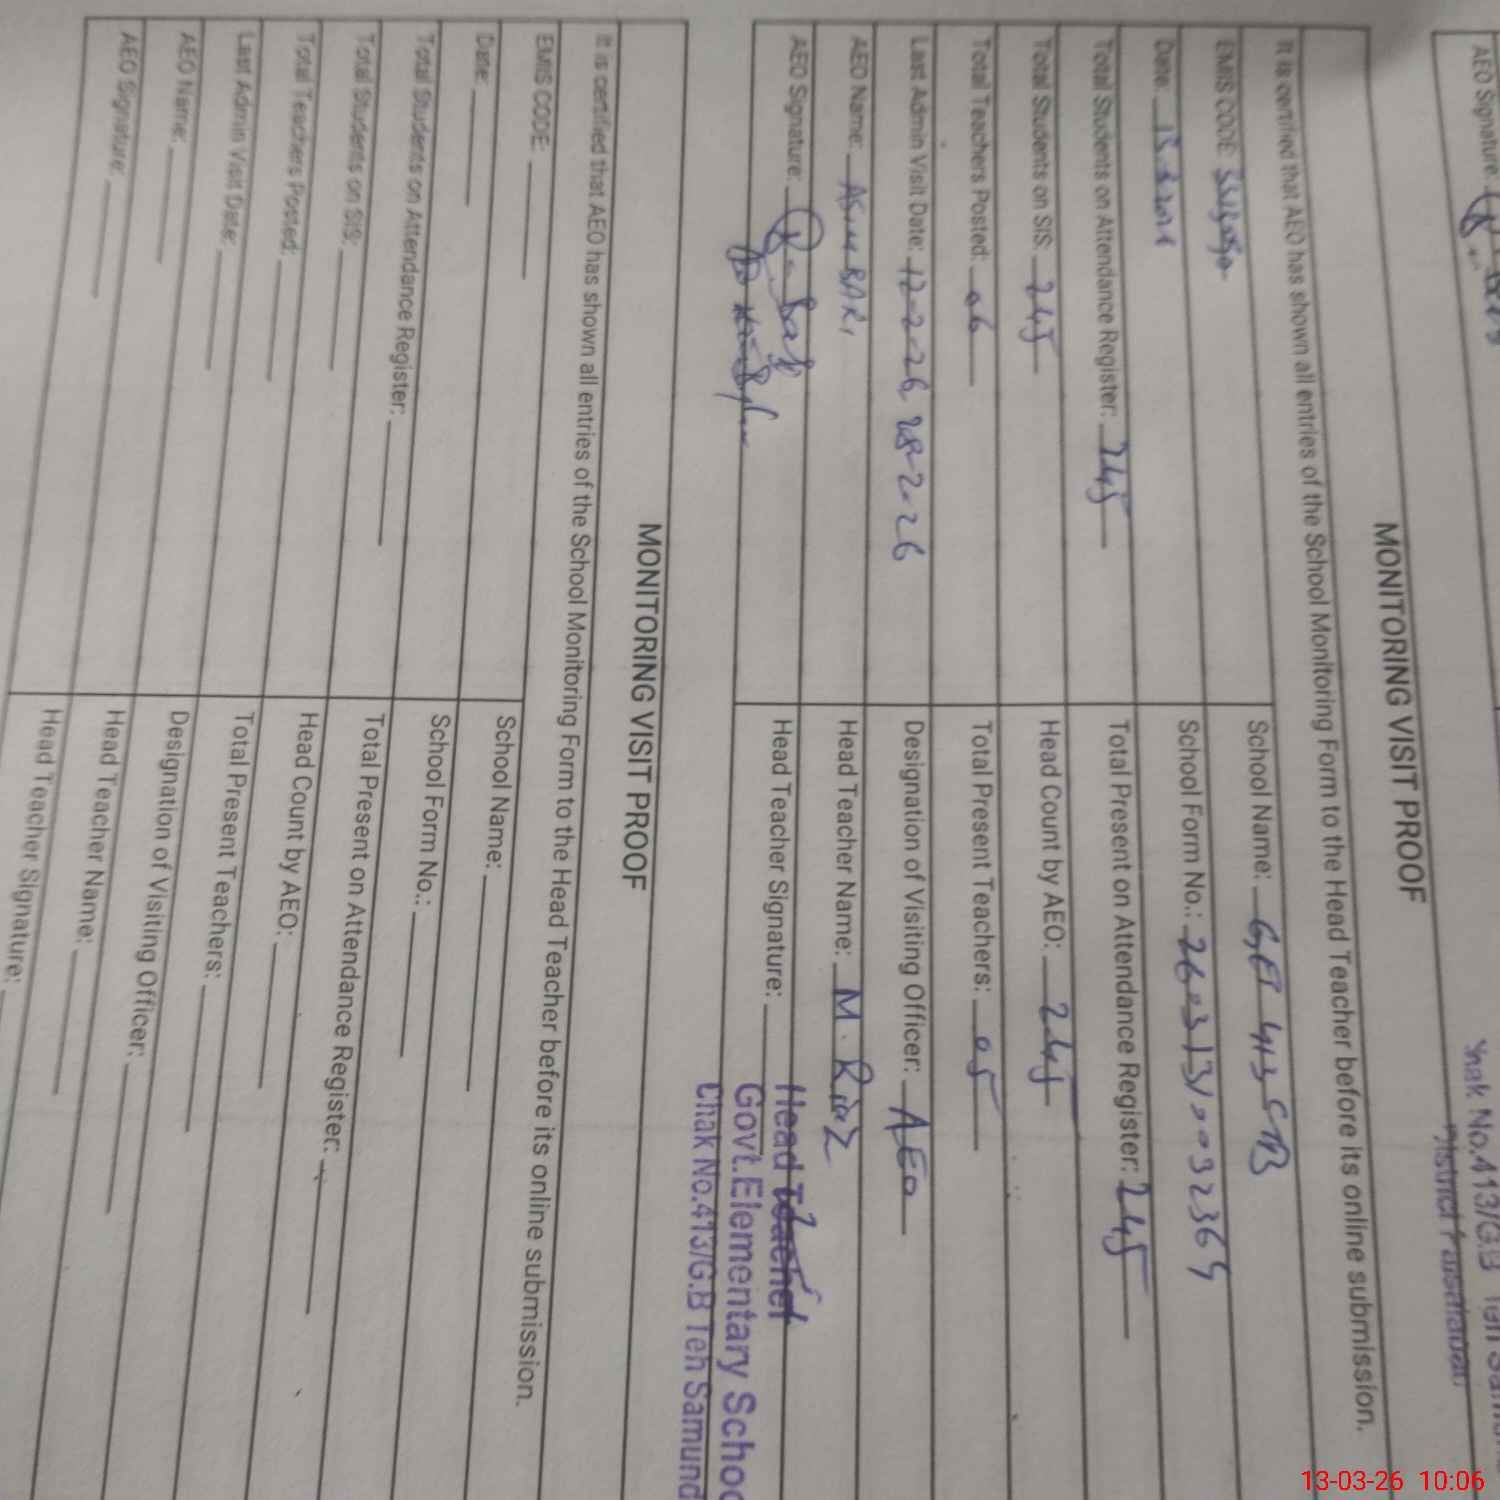 AEO Signature:
Chak No.413/G.B Teh Samund
District Faisalabad
MONITORING VISIT PROOF
It is certified that AEO has shown all entries of the School Monitoring Form to the Head Teacher before its online submission.
EMIS CODE: School Name: GES 413 GB
Date: 13.3.2026 School Form No.:
Total Students on Attendance Register: 245 Total Present on Attendance Register: 245
Total Students on SIS: 245 Head Count by AEO: 245
Total Teachers Posted: 06 Total Present Teachers: 05
Last Admin Visit Date: 17-2-26, 28-2-26 Designation of Visiting Officer: AEO
AEO Name: Head Teacher Name: M. Riaz
AEO Signature: Head Teacher Signature:
Head Teacher
Govt.Elementary Schoo
Chak No.413/G.B Teh Samund
MONITORING VISIT PROOF
It is certified that AEO has shown all entries of the School Monitoring Form to the Head Teacher before its online submission.
EMIS CODE: School Name:
Date: School Form No.:
Total Students on Attendance Register: Total Present on Attendance Register:
Total Students on SIS: Head Count by AEO:
Total Teachers Posted: Total Present Teachers:
Last Admin Visit Date: Designation of Visiting Officer:
AEO Name: Head Teacher Name:
AEO Signature: Head Teacher Signature:
13-03-26 10:06